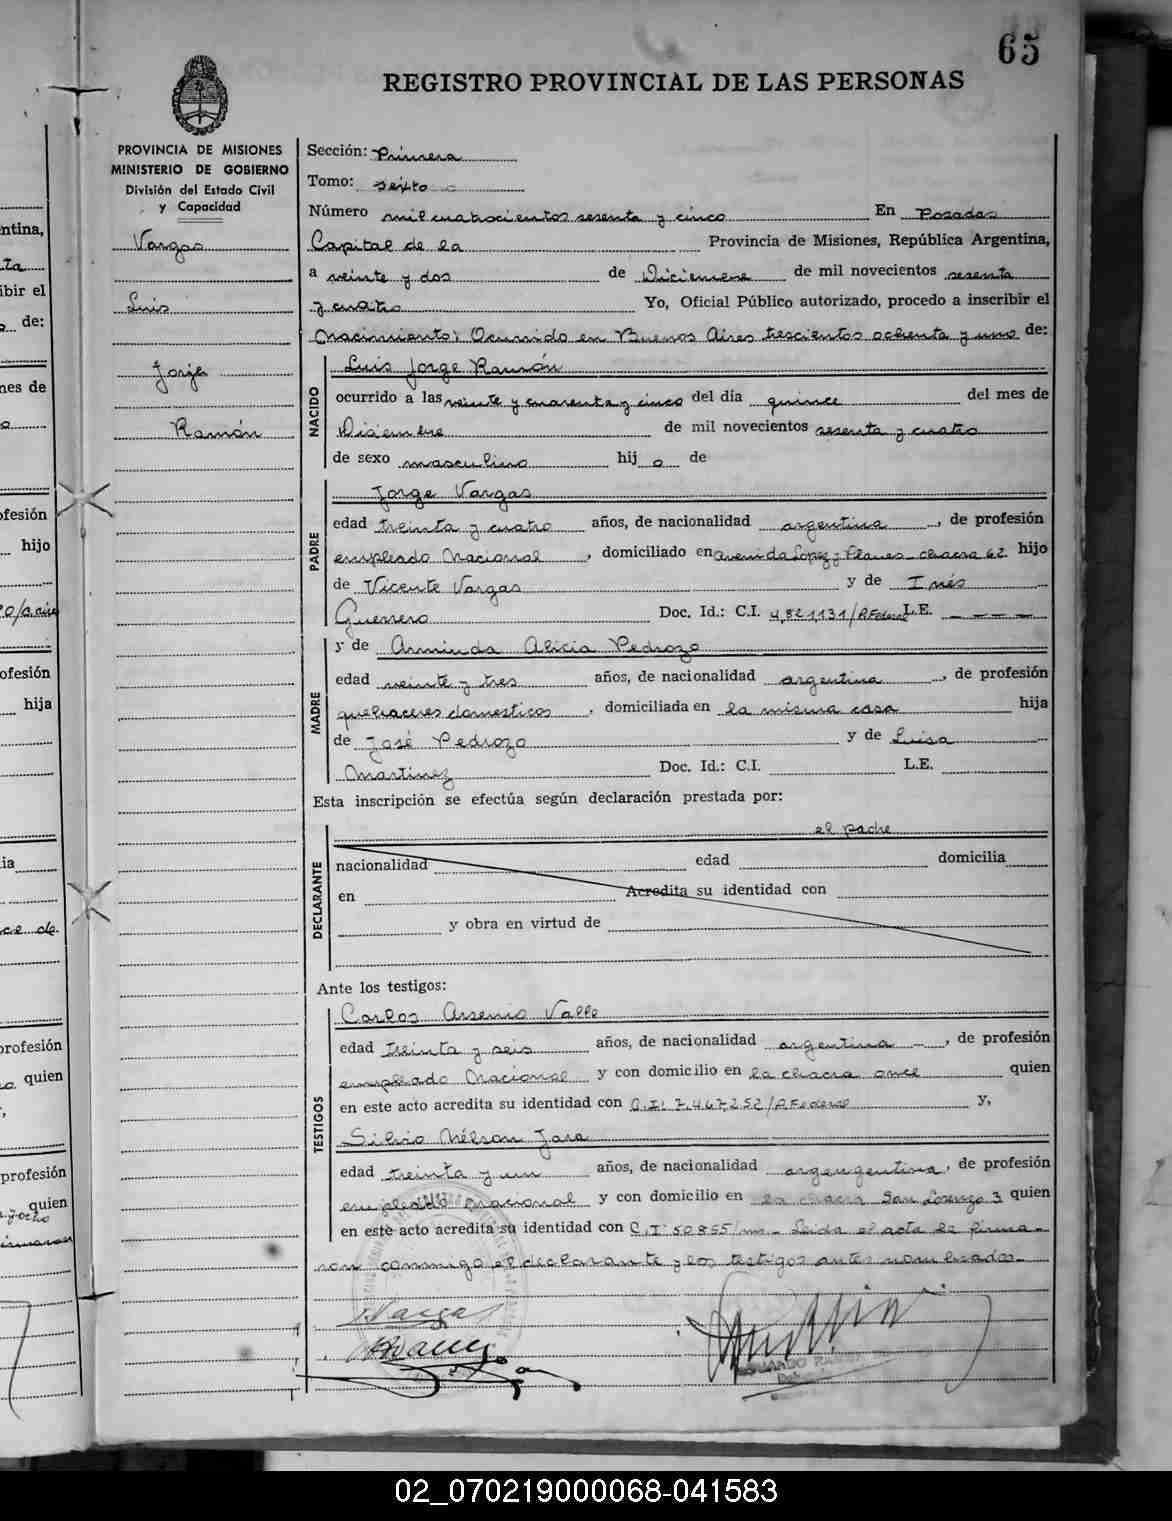 65
REGISTRO PROVINCIAL DE LAS PERSONAS
PROVINCIA DE MISIONES
MINISTERIO DE GOBIERNO
División del Estado Civil
y Capacidad
Vargas
Luis
Jorge
Ramón
Sección: Primera
Tomo: sexto
Número mil cuatrocientos sesenta y cinco En Posadas
Capital de la Provincia de Misiones, República Argentina,
a veinte y dos de Diciembre de mil novecientos sesenta
y cuatro Yo, Oficial Público autorizado, procedo a inscribir el
Nacimiento: Ocurrido en Buenos Aires trescientos ochenta y uno de:
NACIDO
Luis Jorge Ramón
ocurrido a las veinte y cuarenta y cinco del día quince del mes de
Disiembre de mil novecientos sesenta y cuatro
de sexo masculino hij o de
PADRE
Jorge Vargas
edad treinta y cuatro años, de nacionalidad argentina, de profesión
empleado Nacional, domiciliado en avenida Lopez y Planes chacra 62 hijo
de Vicente Vargas y de Inés
Guerrero Doc. Id.: C.I. 4,821,131/P.Federal L.E. — — — —
MADRE
y de Arminda Alicia Pedrozo
edad veinte y tres años, de nacionalidad argentina, de profesión
quehaceres domesticos, domiciliada en la misma casa hija
de José Pedrozo y de Luisa
Martinez Doc. Id.: C.I. L.E.
Esta inscripción se efectúa según declaración prestada por:
DECLARANTE
el padre
nacionalidad edad domicilia
en Acredita su identidad con
y obra en virtud de
Ante los testigos:
TESTIGOS
Carlos Arsenio Valle
edad treinta y seis años, de nacionalidad argentina, de profesión
empleado Nacional y con domicilio en la chacra once quien
en este acto acredita su identidad con C.I: 7.467,252/P.Federal y,
Silvio Nélson Jara
edad treinta y un años, de nacionalidad argengentina, de profesión
empleado nacional y con domicilio en la chacra San Lorenzo 3 quien
en este acto acredita su identidad con C.I: 50855/ms- Leida el acta la firma-
ron conmigo el declarante y los testigos antes nombrados-
JVargas
02_070219000068-041583